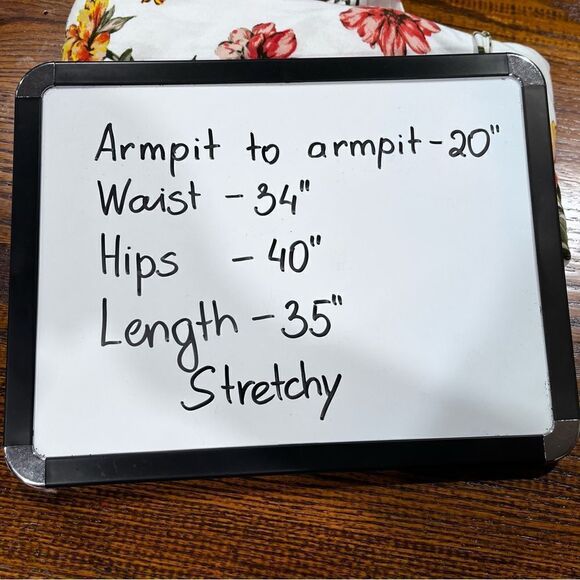 Armpit to armpit - 20"
Waist - 34"
Hips - 40"
Length - 35"
Stretchy